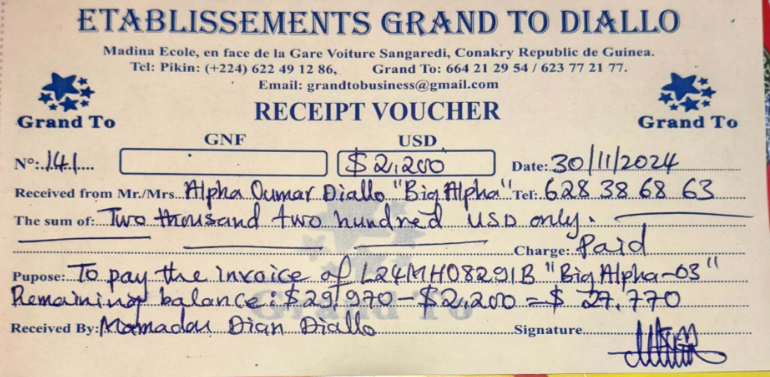 ETABLISSEMENTS GRAND TO DIALLO
Madina Ecole, en face de la Gare Voiture Sangaredi, Conakry Republic de Guinea.
Tel: Pikin: (+224) 622 49 12 86, Grand To: 664 21 29 54 / 623 77 21 77.
Email: grandtobusiness@gmail.com
Grand To RECEIPT VOUCHER Grand To
GNF USD
N°:..141.... $2,200 Date: 30/11/2024
Received from Mr./Mrs. Alpha Oumar Diallo "Big Alpha" Tel: 628 38 68 63
The sum of: Two thousand two hundred USD only.
Charge: Paid
Pupose: To pay the invoice of L24MH08291B "Big Alpha-03"
Remaining balance: $29,970 - $2,200 = $ 27,770
Grand To
Received By: Mamadou Dian Diallo Signature